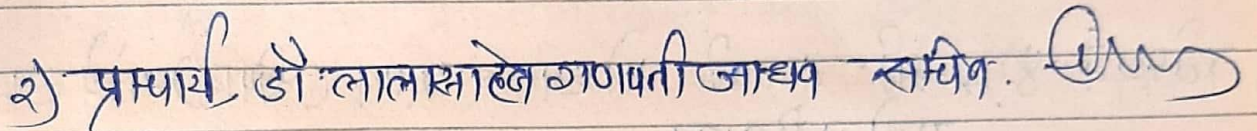 २) प्राचार्य डॉ लालासाहेब गणपती जाधव सचिव.